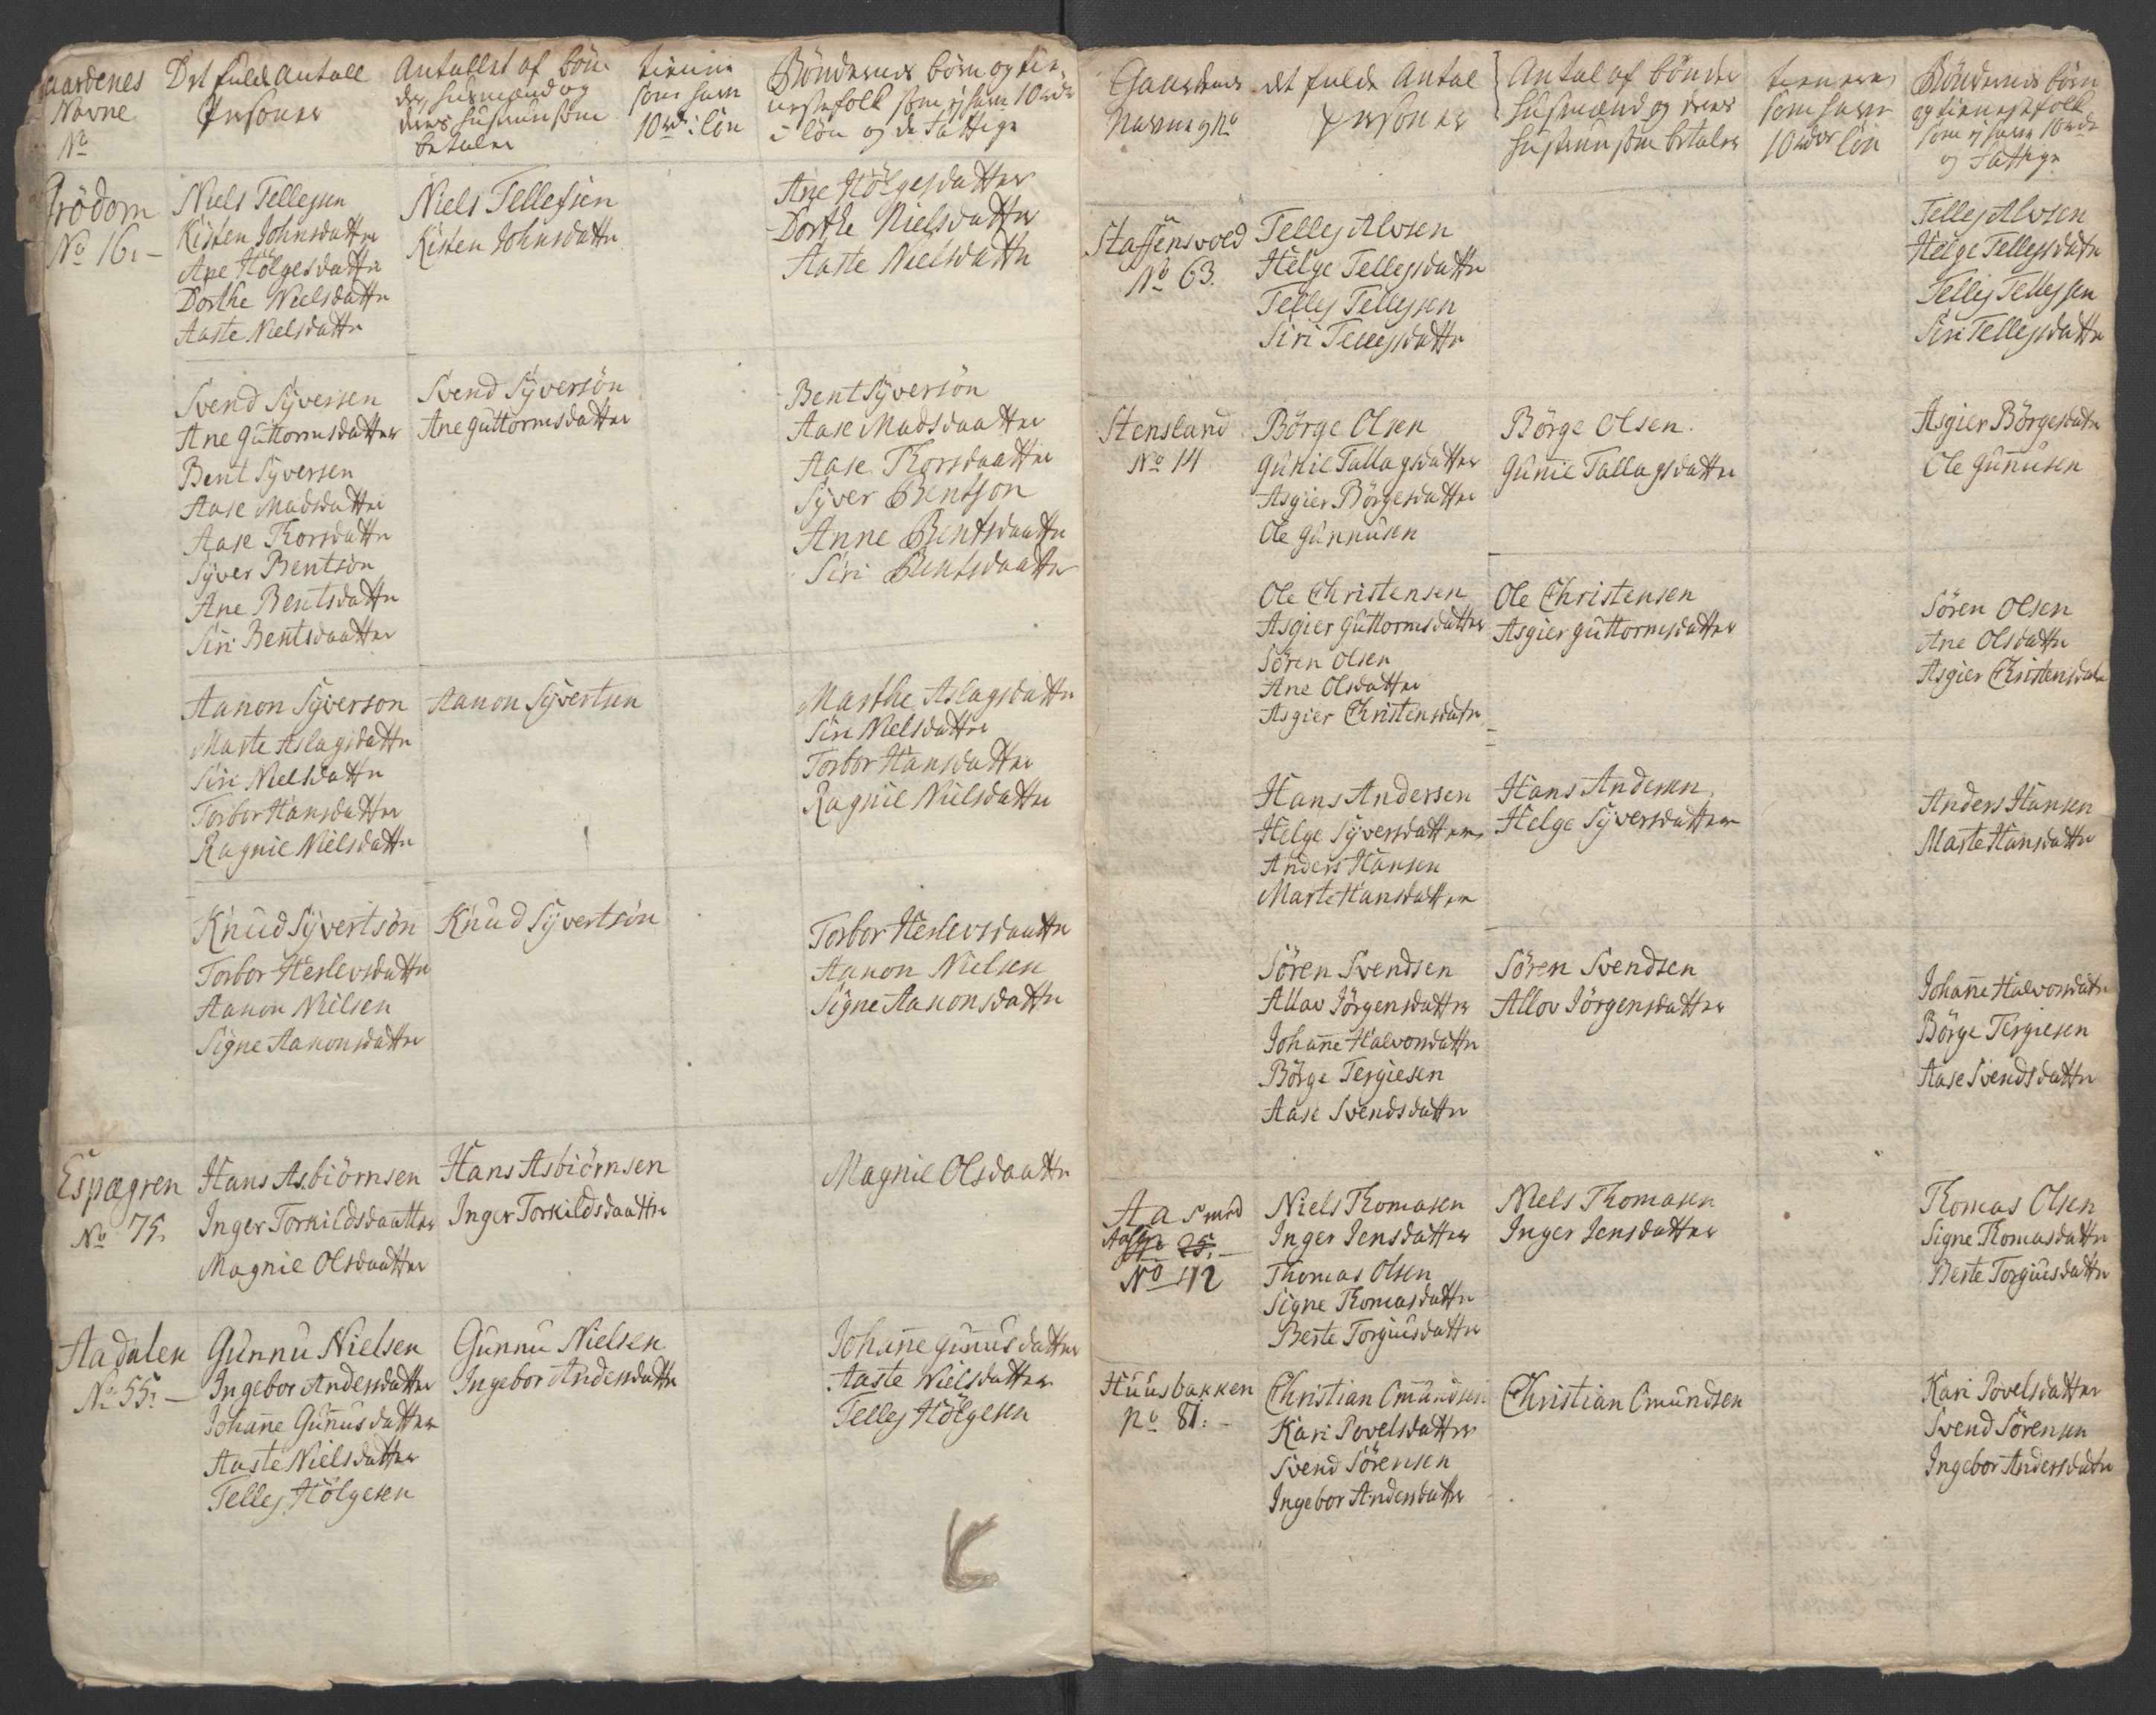 aardenes
Navne
No
Det fulde Antall
Personer
Antallet af bön-
der, husmænd og
deres hustruer som
betaler
tienere
som have
10 rdr: lön
Böndernes börn og tie-
nestefolk som ej have 10 rdr
i lön og de fattige
Frödom
No 16. -
Niels Tellefsen
Kisten Johnsdatter
Ane Hölgesdatter
Dorthe Nielsdatter
Aaste Nielsdatter
Niels Tellefsen
Kisten Johnsdatter
Ane Hölgesdatter
Dorthe Nielsdatter
Aaste Nielsdatter
Svend Syversen
Ane Guttormsdatter
Bent Syversen
Aase Madsdatter
Aase Thorsdatter
Syver Bentsön
Ane Bentsdatter
Siri Bentsdaatter
Svend Syversön
Ane Guttormsdatter
Bent Syversön
Aase Madsdaatter
Aase Thorsdaatter
Syver Bentson
Anne Bentsdaatter
Siri Bentsdaatter
Aanon Syverson
Marte Aslagsdatter
Siri Nielsdatter
Torbor Hansdatter
Ragnil Nielsdatter
Aanon Syvertsen
Marthe Aslagsdatter
Siri Nielsdatter
Torbor Hansdatter
Ragnil Nielsdatter
Knud Syvertsön
Torbor Herlevsdatter
Aanon Nielsen
Signe Aanonsdatter
Knud Syvertsön
Torbor Herlevsdaatter
Aanon Nielsen
Signe Aanonsdatter
Espægren
No 75.
Hans Asbiörnsen
Inger Torkildsdaatter
Magnil Olsdaatter
Hans Asbiörnsen
Inger Torkildsdaatter
Magnil Olsdaatter
Aadalen
No 55. -
Gunnu Nielsen
Ingebor Andersdatter
Johañe Guñusdatter
Aaste Nielsdatter
Tellef Hölgesen
Gunnu Nielsen
Ingebor Andersdatter
Johañe guñusdatter
Aaste Nielsdatter
Tellef Hölgesen
Gaardenes
Navne og No
det fulde Antal
Personer
Antal af bönder
husmænd og deres
hustruer som betaler
tienere
som have
10 rdr lön
Böndernes börn
og tienestefolk
som ej have 10 rdr
og fattige
Staffensvoed
No 63.
Tellef Alvsen
Helge Tellefsdatter
Tellef Tellefsen
Siri Tellefsdatter
Tellef Alvsen
Helge Tellefsdatter
Tellef Tellefsen
Siri Tellefsdatter
Stensland
No 14
Börge Olsen
Gunil Tallagsdatter
Asgier Börgesdatter
Ole Gunnusen
Börge Olsen.
Gunil Tallagsdatter
Asgier Börgesdatr
Ole Guñusen
Ole Christensen
Asgier Guttormsdatter
Sören Olsen
Ane Olsdatter
Asgier Christensdatr
Ole Christensen
Asgier guttormsdatter
Sören Olsen
Ane Olsdatter
Asgier Christensdatr
Hans Andersen
Helge Syversdatter
Anders Hansen
Marte Hansdatter
Hans Andersen
Helge Syversdatter
Anders Hansen
Marte Hansdatter
Sören Svendsen
Allov Jörgensdatter
Johañe Halvorsdatter
Börge Tergiesen
Aase Svendsdatter
Sören Svendsen
Allov Jörgensdatter
Johañe Halvorsdatr
Börge Tergiesen
Aase Svendsdatter
Aas med
25. -
No 42
Niels Thomasen
Inger Jensdatter
Thomas Olsen
Signe Thomasdatter
Berte Torgiusdatter
Niels Thomasen
Inger Jensdatter
Thomas Olsen
Signe Thomasdatter
Berte Torgiusdatter
Huusbakken
No 81. -
Christian Omundsen
Kari Povelsdatter
Svend Sörensen
Ingebor Andersdatter
Christian Omundsen
Kari Povelsdatter
Svend Sörensen
Ingebor Andersdatr